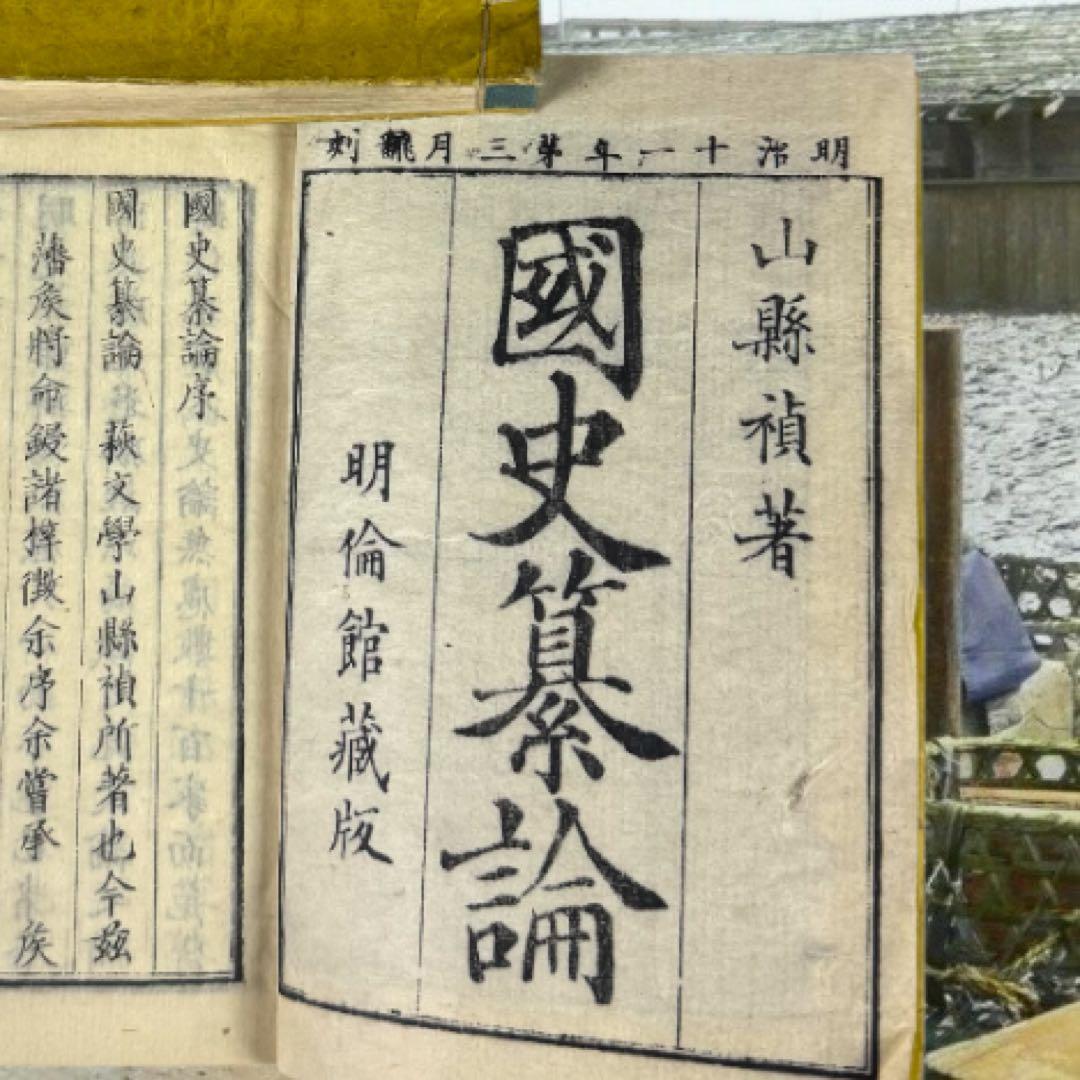 明治十一年第三月飜刻
山縣禎著
國史纂論
明倫館藏版
國史纂論序
國史纂論萩文學山縣禎所著也今茲
藩矦將命鋟諸梓徵余序余嘗承